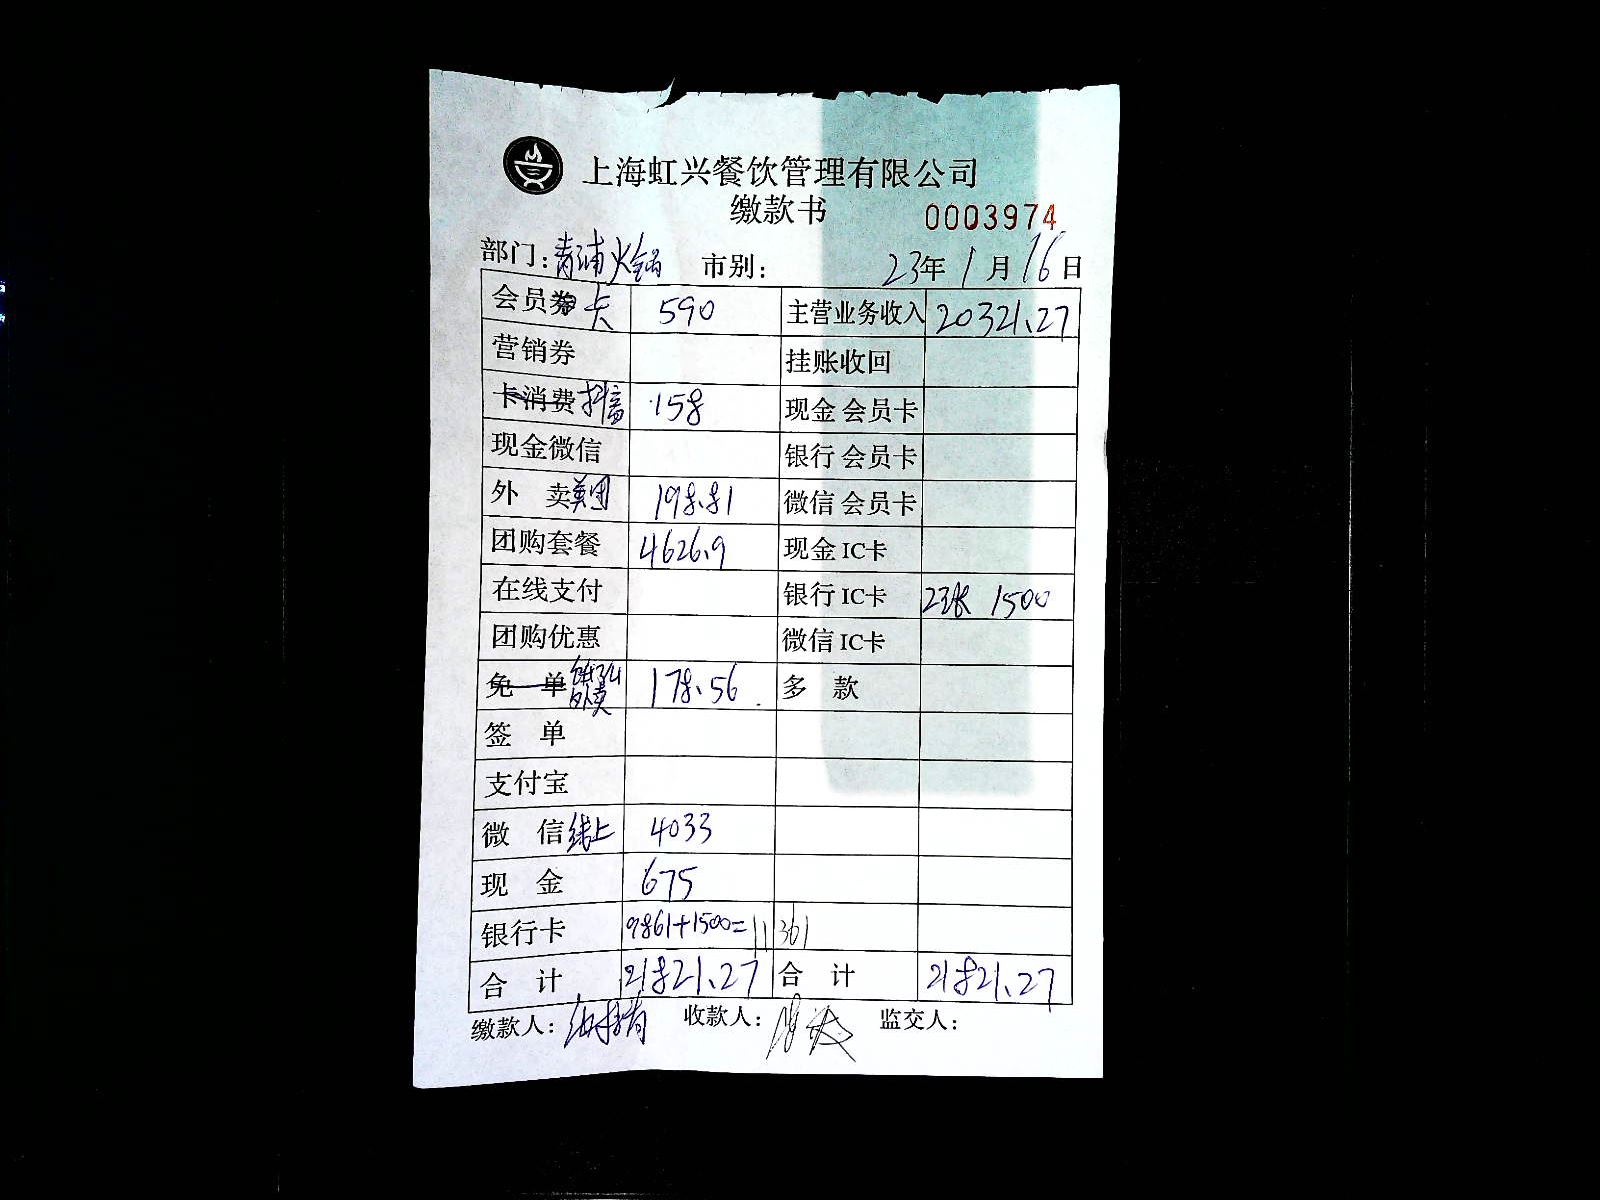 上海虹兴餐饮管理有限公司
缴款书 0003974
部门: 青浦火锅 市别: 23年1月16日
会员券 卡 590 主营业务收入 20321.27
营销券 挂账收回
卡消费 抖音 158 现金 会员卡
现金微信 银行 会员卡
外 卖 美团 198.81 微信 会员卡
团购套餐 4626.9 现金 IC卡
在线支付 银行 IC卡 23张 1500
团购优惠 微信 IC卡
免 单 饿了么外卖 178.56 多 款
签 单
支付宝
微 信 线上 4033
现 金 675
银行卡 9861+1500=11361
合 计 21821.27 合 计 21821.27
缴款人: 收款人: 监交人: